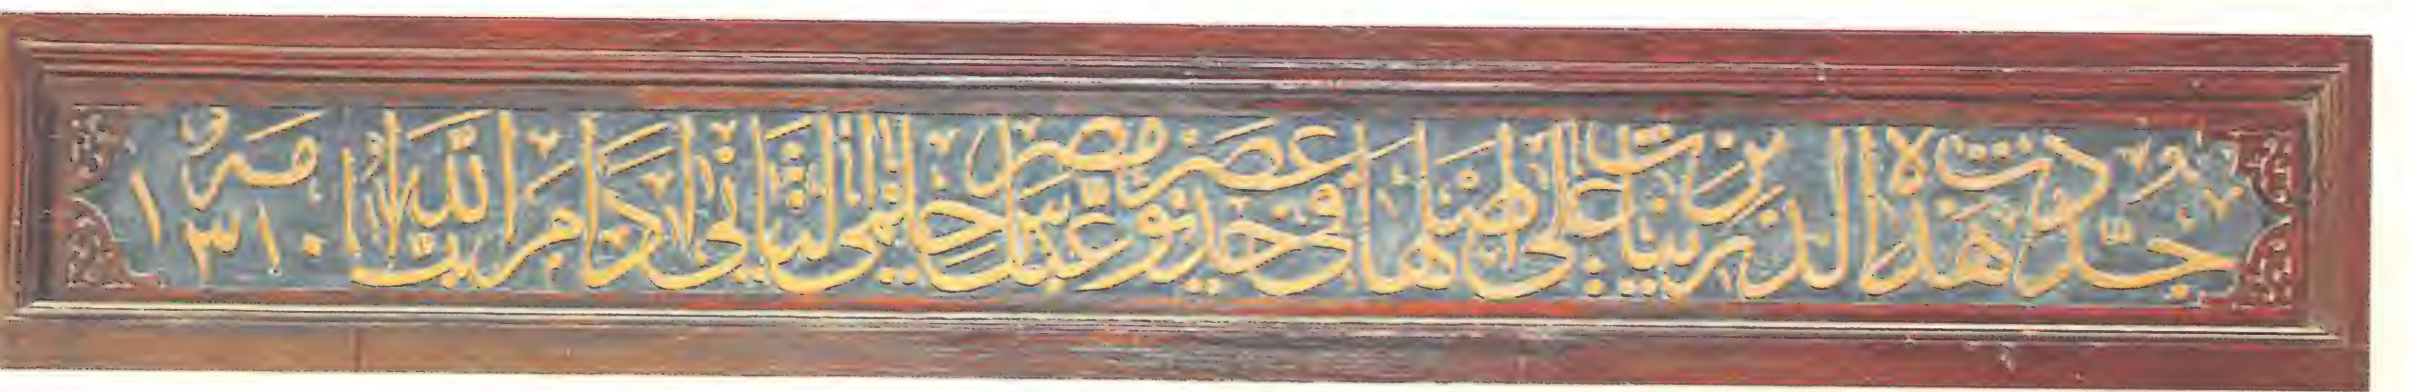 جددت هذه الدربزينات على اصلها في عصر خديو مصر عباس حلمي الثاني ادام الله ايامه ١٣١٠